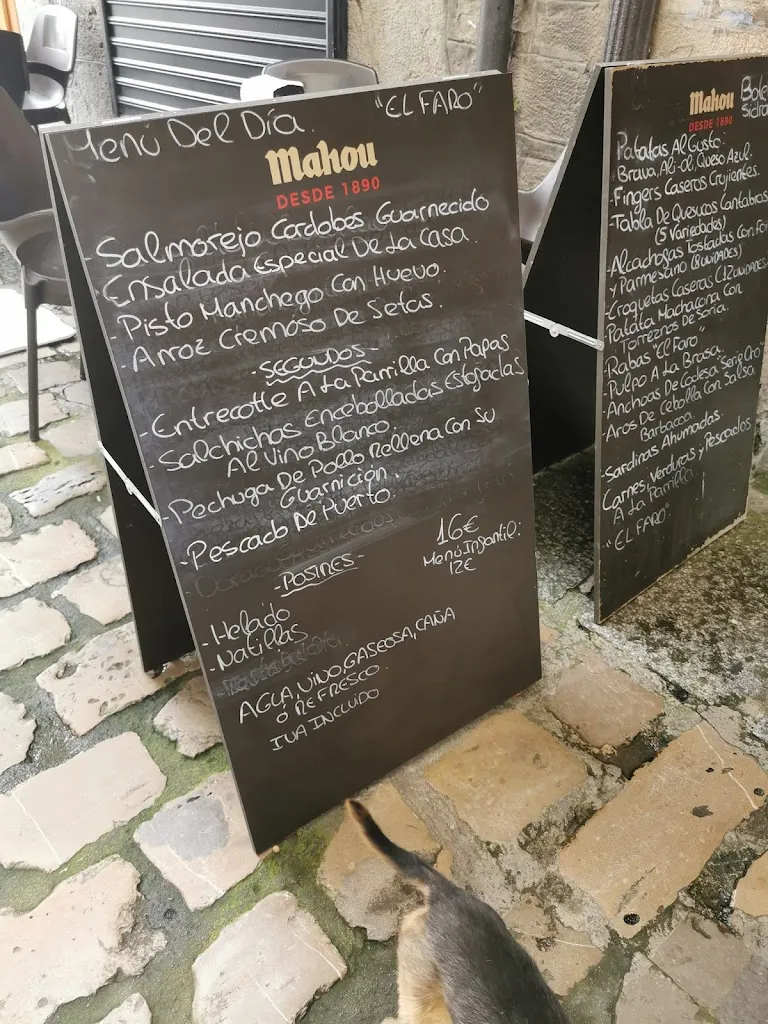 Menú Del Día.
"EL FARO"
Mahou
DESDE 1890
-Salmorejo Cordobes Guarnecido
-Ensalada Especial De La Casa.
-Pisto Manchego Con Huevo.
-Arroz Cremoso De Setas.
-SEGUNDOS-
-Entrecotte A La Parrilla Con Papas
-Salchichas Encebolladas Estofadas
Al Vino Blanco.
-Pechuga De Pollo Rellena Con Su
Guarnición.
-Pescado De Puerto.
-POSTRES-
16€
Menú Infantil:
12€
-Helado
-Natillas
AGUA, VINO, GASEOSA, CAÑA
Ó REFRESCO.
IVA INCLUIDO
Mahou
DESDE 1890
Patatas Al Gusto.
Brava, Ali-oli, Queso Azul.
-Fingers Caseros Crujientes.
-Tabla De Quesucos Cantabros
(5 Variedades)
-Alcachofas Tostadas Con
y Parmesano (8 unidades)
-Croquetas Caseras (12 unidades
-Patata Machacona Con
Torreznos De Soria.
-Rabas "El Faro"
-Pulpo A La Brasa.
-Anchoas De Codesa Serie Oro
-Aros De Cebolla Con Salsa
Barbacoa.
-Sardinas Ahumadas.
Carnes, Verduras y Pescados
A La Parrilla
"EL FARO"